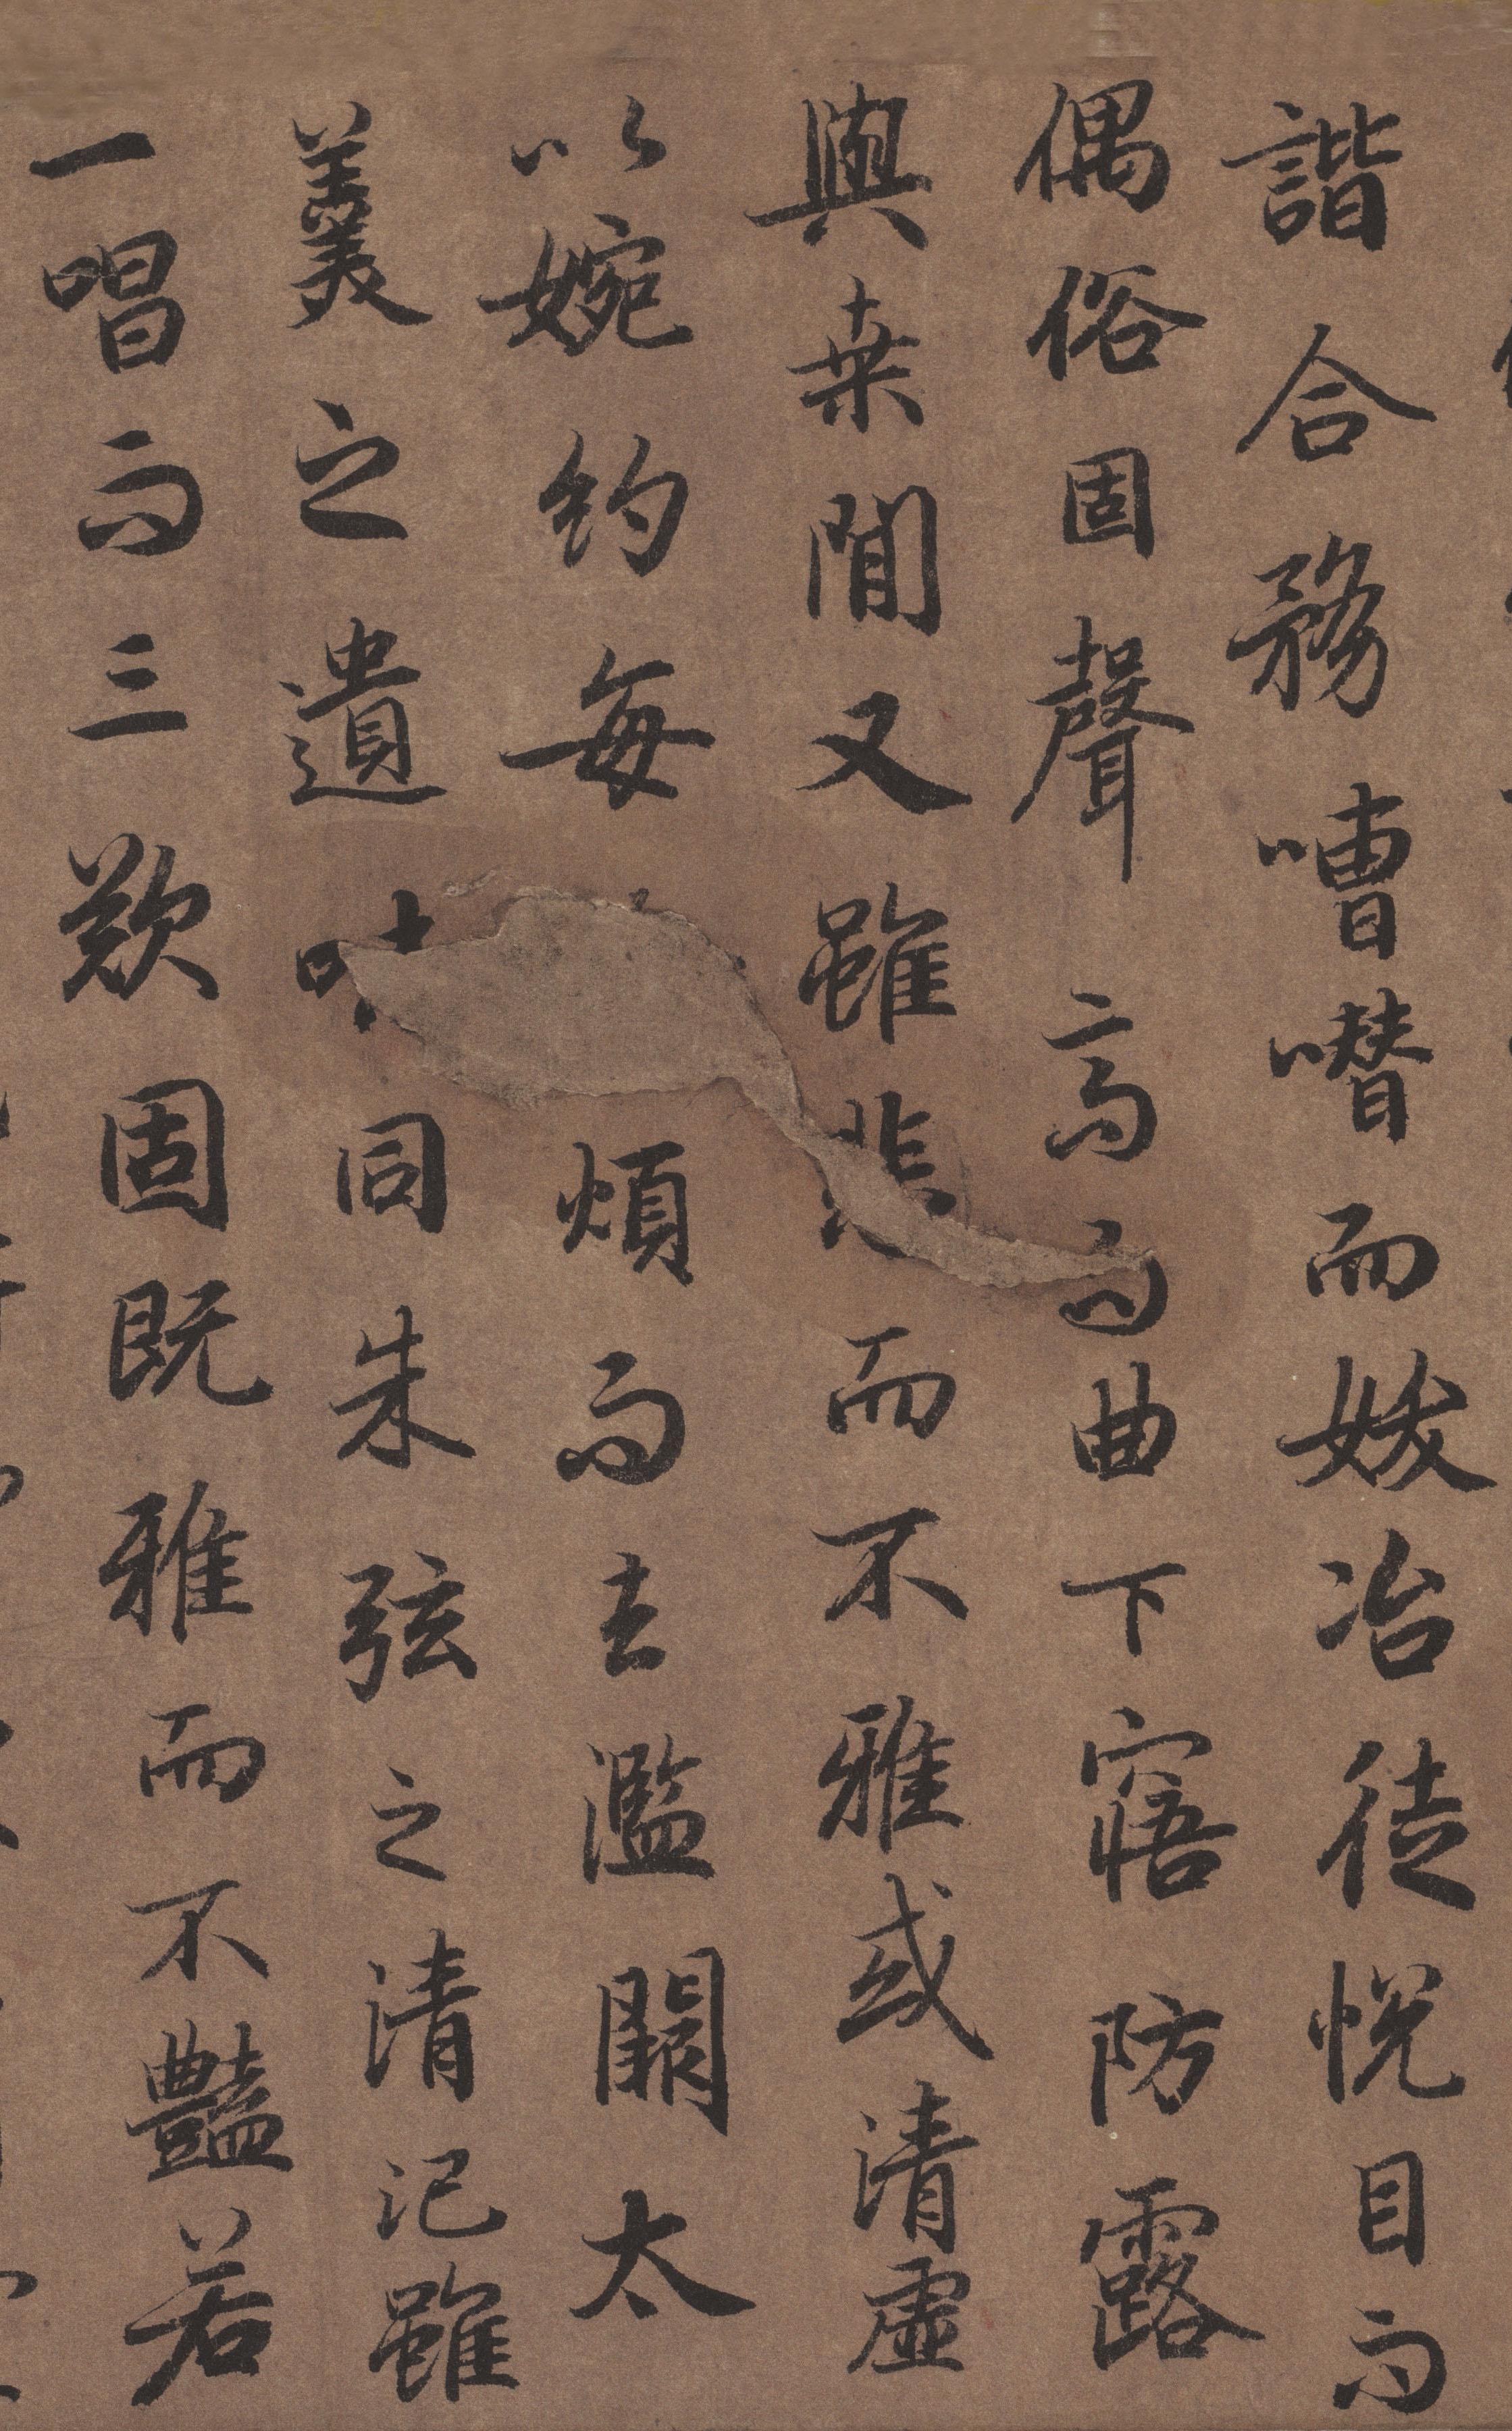 諧合務嘈噆而妖冶徒悅目而
偶俗固聲高而曲下寤防露
與桒間又雖悲而不雅或清虛
以婉約每煩而去濫闕太
羹之遺味同朱弦之清氾雖
一唱而三歎固既雅而不豔若